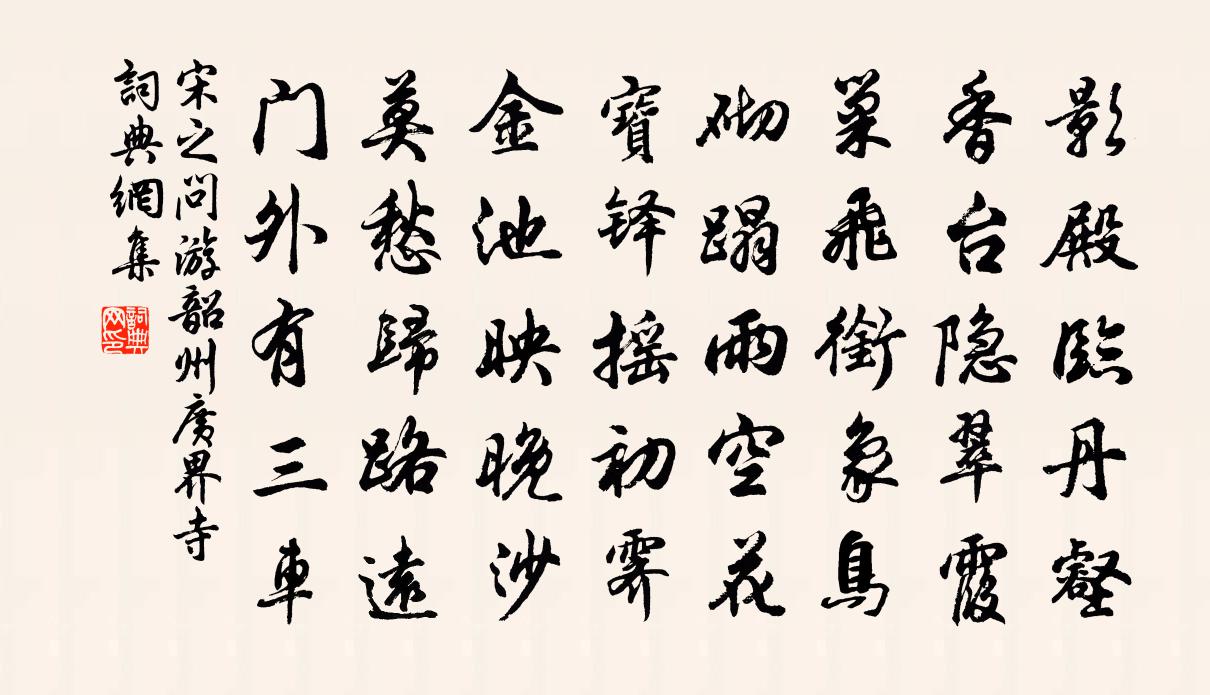 影殿臨丹壑
香台隐翠霞
巢飛銜象鳥
砌蹋雨空花
寶铎摇初霽
金池映晚沙
莫愁歸路遠
门外有三車
宋之问游韶州廣界寺
詞典網集
詞典
网印